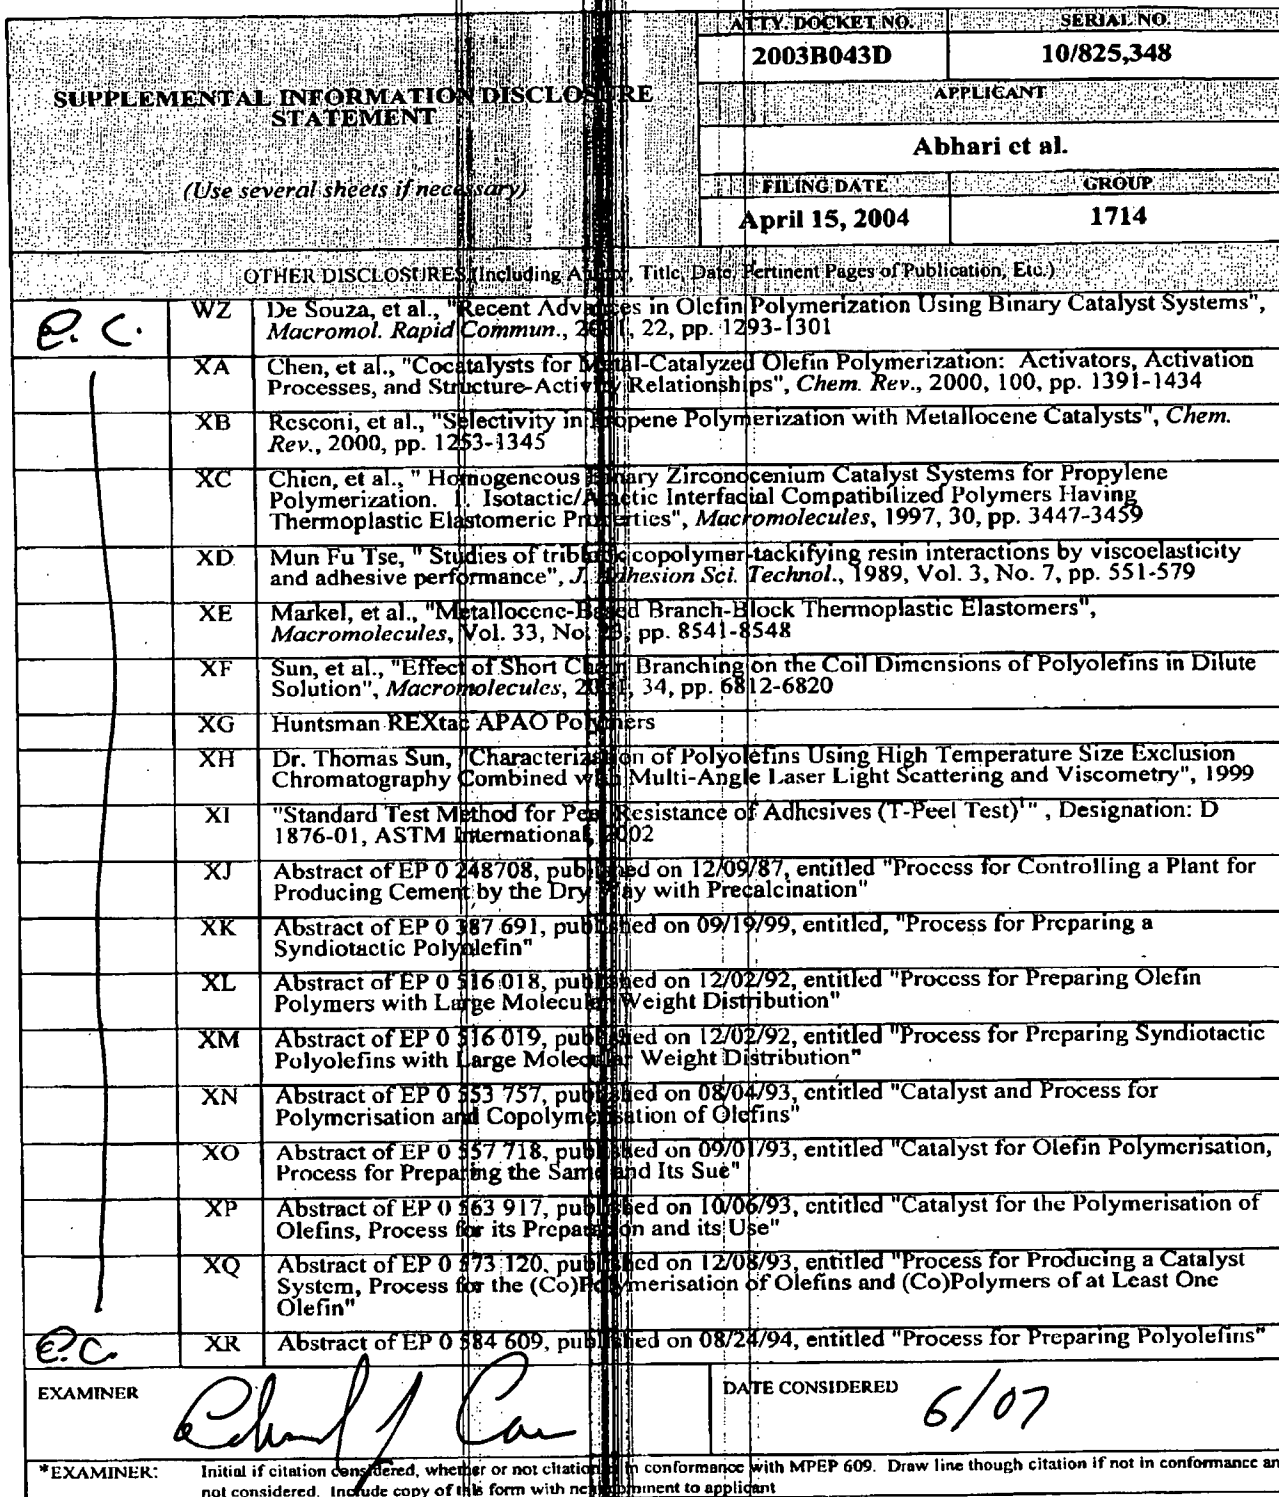 ATTY. DOCKET NO. SERIAL NO.
2003B043D 10/825,348
SUPPLEMENTAL INFORMATION DISCLOSURE
STATEMENT
APPLICANT
Abhari et al.
(Use several sheets if necessary)
FILING DATE GROUP
April 15, 2004 1714
OTHER DISCLOSURES (Including Author, Title, Date, Pertinent Pages of Publication, Etc.)
e. c. WZ De Souza, et al., "Recent Advances in Olefin Polymerization Using Binary Catalyst Systems",
Macromol. Rapid Commun., 2001, 22, pp. 1293-1301
XA Chen, et al., "Cocatalysts for Metal-Catalyzed Olefin Polymerization: Activators, Activation
Processes, and Structure-Activity Relationships", Chem. Rev., 2000, 100, pp. 1391-1434
XB Resconi, et al., "Selectivity in Propene Polymerization with Metallocene Catalysts", Chem.
Rev., 2000, pp. 1253-1345
XC Chien, et al., " Homogeneous Binary Zirconocenium Catalyst Systems for Propylene
Polymerization. 1. Isotactic/Atactic Interfacial Compatibilized Polymers Having
Thermoplastic Elastomeric Properties", Macromolecules, 1997, 30, pp. 3447-3459
XD Mun Fu Tse, " Studies of triblock copolymer-tackifying resin interactions by viscoelasticity
and adhesive performance", J. Adhesion Sci. Technol., 1989, Vol. 3, No. 7, pp. 551-579
XE Markel, et al., "Metallocene-Based Branch-Block Thermoplastic Elastomers",
Macromolecules, Vol. 33, No. pp. 8541-8548
XF Sun, et al., "Effect of Short Chain Branching on the Coil Dimensions of Polyolefins in Dilute
Solution", Macromolecules, 2001, 34, pp. 6812-6820
XG Huntsman REXtac APAO Polymers
XH Dr. Thomas Sun, "Characterization of Polyolefins Using High Temperature Size Exclusion
Chromatography Combined with Multi-Angle Laser Light Scattering and Viscometry", 1999
XI "Standard Test Method for Peel Resistance of Adhesives (T-Peel Test)¹" , Designation: D
1876-01, ASTM International, 2002
XJ Abstract of EP 0 248708, published on 12/09/87, entitled "Process for Controlling a Plant for
Producing Cement by the Dry Way with Precalcination"
XK Abstract of EP 0 387 691, published on 09/19/99, entitled, "Process for Preparing a
Syndiotactic Polyolefin"
XL Abstract of EP 0 516 018, published on 12/02/92, entitled "Process for Preparing Olefin
Polymers with Large Molecular Weight Distribution"
XM Abstract of EP 0 516 019, published on 12/02/92, entitled "Process for Preparing Syndiotactic
Polyolefins with Large Molecular Weight Distribution"
XN Abstract of EP 0 553 757, published on 08/04/93, entitled "Catalyst and Process for
Polymerisation and Copolymerisation of Olefins"
XO Abstract of EP 0 557 718, published on 09/01/93, entitled "Catalyst for Olefin Polymerisation,
Process for Preparing the Same and Its Sue"
XP Abstract of EP 0 563 917, published on 10/06/93, entitled "Catalyst for the Polymerisation of
Olefins, Process for its Preparation and its Use"
XQ Abstract of EP 0 573 120, published on 12/08/93, entitled "Process for Producing a Catalyst
System, Process for the (Co)Polymerisation of Olefins and (Co)Polymers of at Least One
Olefin"
e. c. XR Abstract of EP 0 584 609, published on 08/24/94, entitled "Process for Preparing Polyolefins"
EXAMINER DATE CONSIDERED 6/07
*EXAMINER: Initial if citation considered, whether or not citation in conformance with MPEP 609. Draw line though citation if not in conformance an
not considered. Include copy of this form with next to applicant